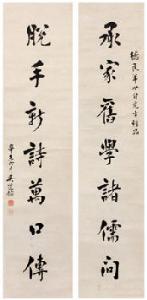 承家舊學諸儒問
脫手新詩萬口傳